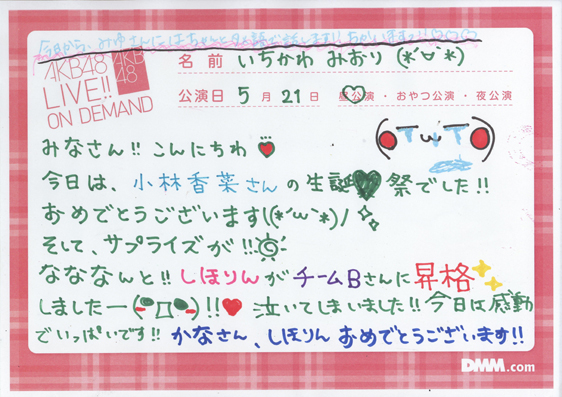 今日から、みゆさんに、はちゃんと日本語で話します!! ちがいますっ!!♡♡♡
AKB48
AKB
48
LIVE!!
ON DEMAND
名前 いちかわ みおり (*´∀`*)
公演日 5月21日 昼公演・おやつ公演・夜公演
みなさん!! こんにちわ
今日は、小林香菜さんの生誕♥祭でした!!
おめでとうございます\(*´ω`*)/
そして、サプライズが!!
なななんと!! しほりんがチームBさんに昇格
しましたー!!♥ 泣いてしまいました!! 今日は感動
でいっぱいです!! かなさん、しほりん おめでとうございます!!
DMM.com